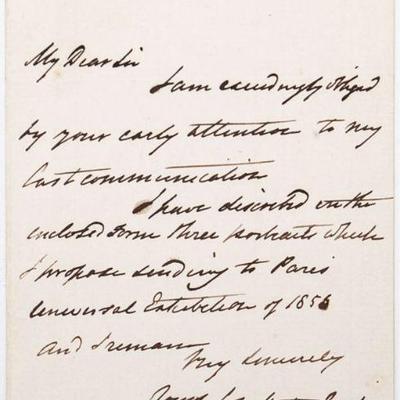 My Dear Sir
I am exceedingly obliged
by your early attention to my
last communication
I have described on the
enclosed form three portraits which
I propose sending to Paris
Universal Exhibition of 1855
and I remain
Very Sincerely